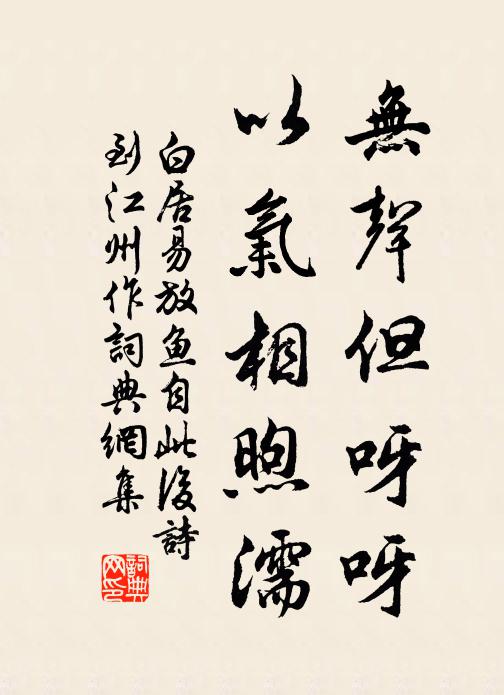 無聲但呀呀
以氣相煦濡
白居易放鱼自此後詩
到江州作詞典網集
詞典
网印